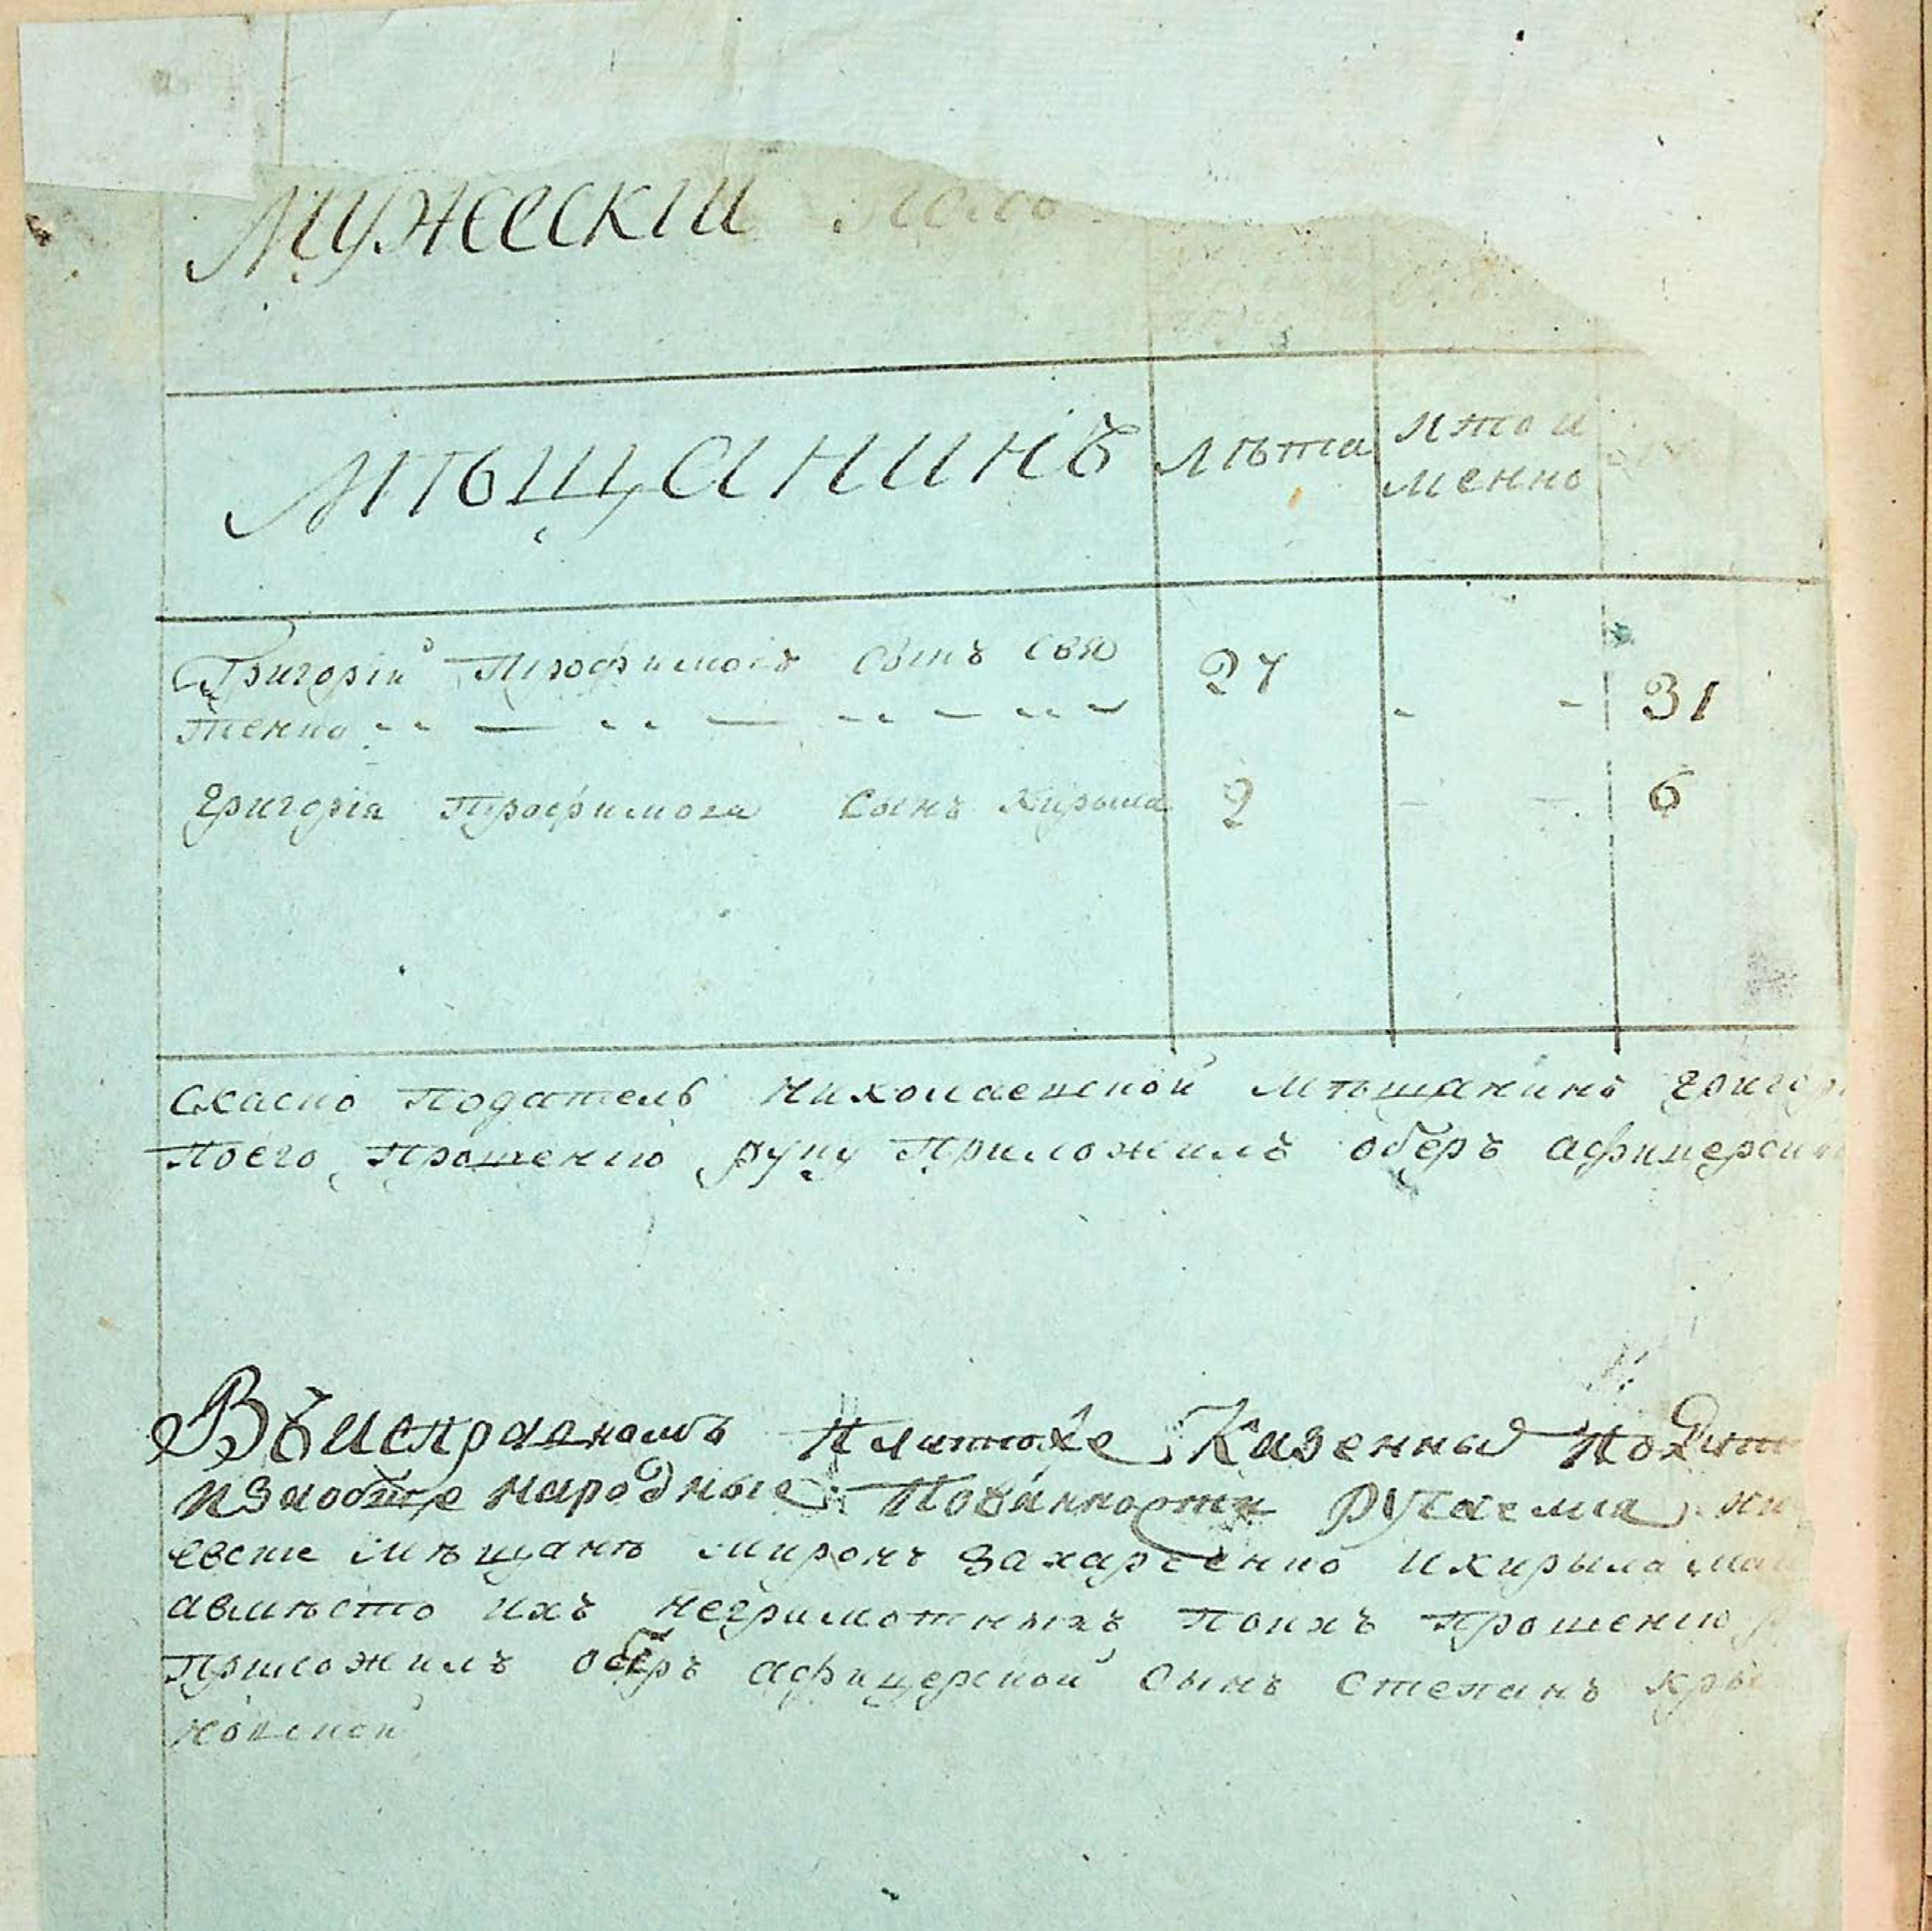 Мужескіи полъ
Мѣщанинъ
лѣта
и кто и
менно
Григоріи Трофимовъ сынъ Свя
тенко
27
31
Григорія Трофимова сынъ Кирыла
2
6
Скаско податель Николаевской мѣщанинъ Григор
поего прошенію руку приложилъ оберъ афицерской
Въ исправномъ платеже Казенных подат
извообще народные Повинности ручаемся ни
евские мѣщанѣ миронъ Захарченко икирыла
авмѣсто ихъ неграмотныхъ поихъ прошенію
приложилъ оберъ афицерской сынъ степанъ